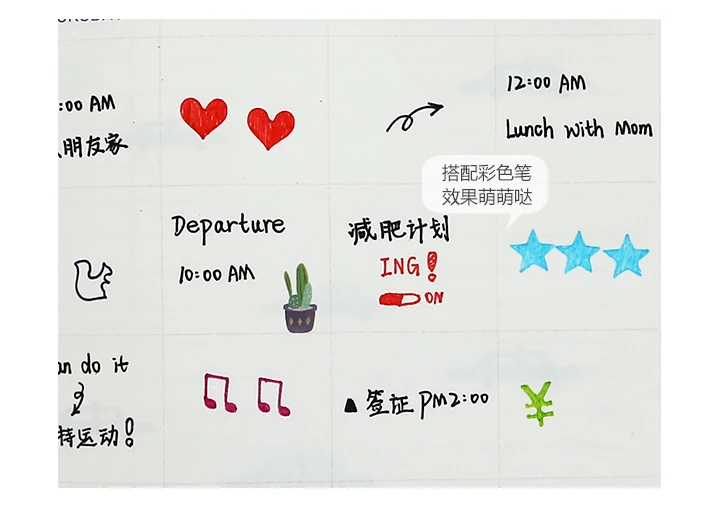 :00 AM
朋友家
12:00 AM
Lunch with Mom
搭配彩色笔
效果萌萌哒
Departure
10:00 AM
减肥计划
ING!
ON
do it
持运动!
▲签证 PM2:00
¥